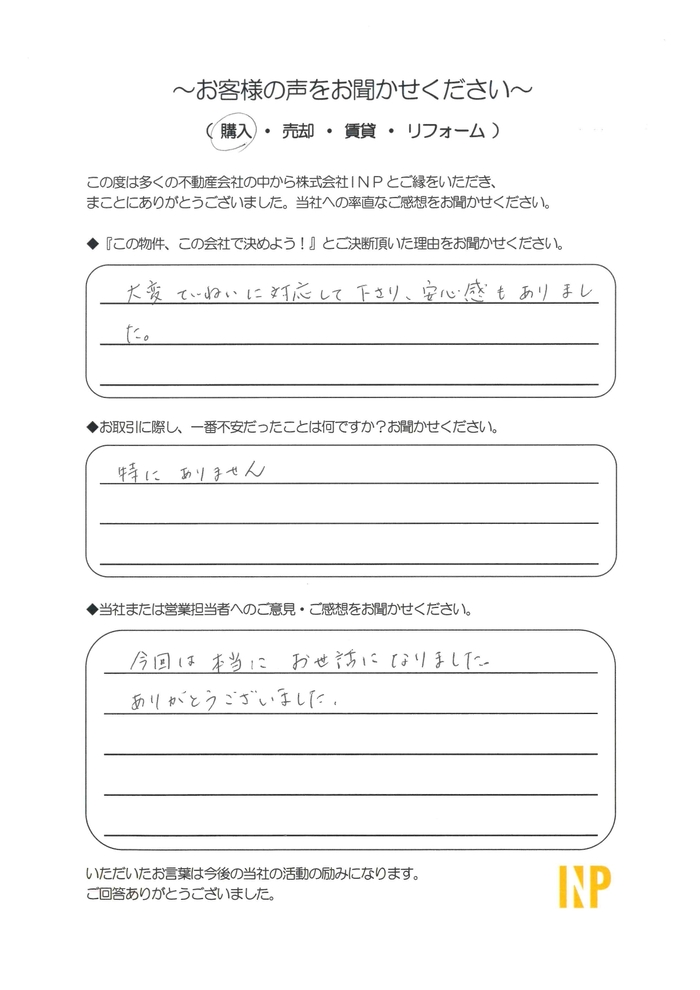 ～お客様の声をお聞かせください～
（ 購入 ・ 売却 ・ 賃貸 ・ リフォーム ）
この度は多くの不動産会社の中から株式会社ＩＮＰとご縁をいただき、
まことにありがとうございました。当社への率直なご感想をお聞かせください。
◆『この物件、この会社で決めよう！』とご決断頂いた理由をお聞かせください。
大変ていねいに対応して下さり、安心感もありまし
た。
◆お取引に際し、一番不安だったことは何ですか？お聞かせください。
特に ありません
◆当社または営業担当者へのご意見・ご感想をお聞かせください。
今回は 本当に お世話に なりました。
ありがとうございました。
いただいたお言葉は今後の当社の活動の励みになります。
ご回答ありがとうございました。
INP